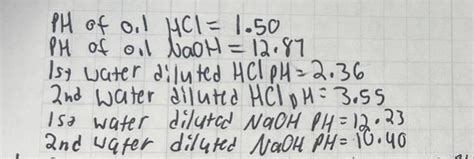 PH of 0.1 HCl = 1.50
PH of 0.1 NaOH = 12.87
1st water diluted HCl pH = 2.36
2nd water diluted HCl pH = 3.55
1st water diluted NaOH PH = 12.23
2nd water diluted NaOH PH = 10.40